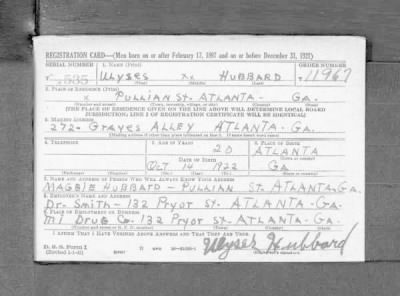 REGISTRATION CARD—(Men born on or after February 17, 1897 and on or before December 31, 1921)
SERIAL NUMBER 1. NAME (Print) ORDER NUMBER
535 ULYSES xx HUBBARD 11967
(First) (Middle) (Last)
2. PLACE OF RESIDENCE (Print)
x PULLIAN St. ATLANTA - GA.
(Number and street) (Town, township, village, or city) (County) (State)
[THE PLACE OF RESIDENCE GIVEN ON THE LINE ABOVE WILL DETERMINE LOCAL BOARD
JURISDICTION; LINE 2 OF REGISTRATION CERTIFICATE WILL BE IDENTICAL]
3. MAILING ADDRESS
272- Graves ALLEY ATLANTA. GA.
[Mailing address if other than place indicated on line 2. If same insert word same]
4. TELEPHONE 5. AGE IN YEARS 6. PLACE OF BIRTH
20 ATLANTA
DATE OF BIRTH (Town or county)
OCT 14 1922 GA
(Exchange) (Number) (Mo.) (Day) (Yr.) (State or country)
7. NAME AND ADDRESS OF PERSON WHO WILL ALWAYS KNOW YOUR ADDRESS
MAGGIE HUBBARD - PULLIAN ST. ATLANTA-GA.
8. EMPLOYER'S NAME AND ADDRESS
Dr. Smith - 132 Pryor ST. ATLANTA. GA.
9. PLACE OF EMPLOYMENT OR BUSINESS
MI Drug Co. 132 Pryor ST. ATLANTA. Ga.
(Number and street or R. F. D. number) (Town) (County) (State)
I AFFIRM THAT I HAVE VERIFIED ABOVE ANSWERS AND THAT THEY ARE TRUE.
D. S. S. Form 1
(over) Ulyses Hubbard